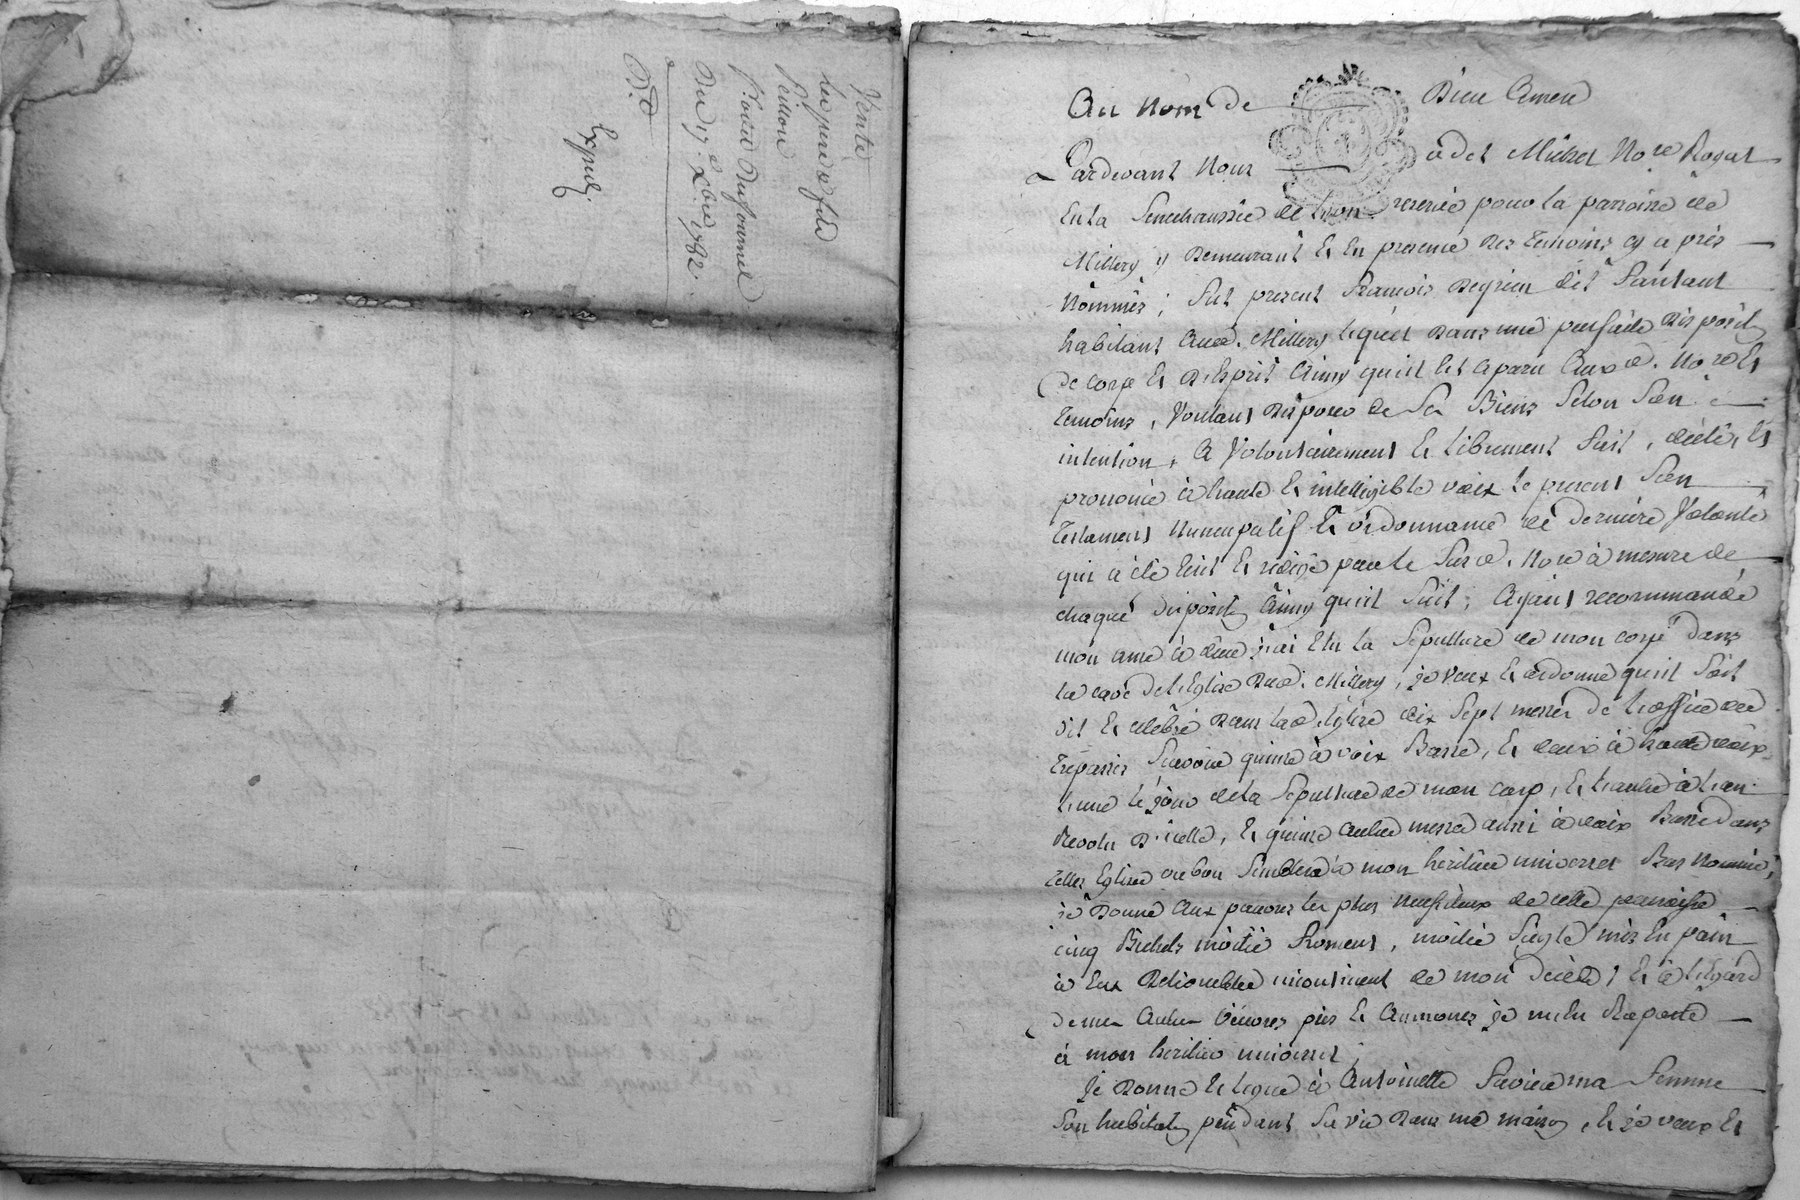 Vente
les pere & fils
Pierre Dufournel
Du 17 xbre 1782.
Expedié.
Au Nom de Dieu Amen
Pardevant Nous Michel Nore Royal
En la Senechaussée de Lyon reservé pour la parroisse de
Millery y Demeurant & En presence Des temoins cy après
Nommés ; fut present François dit
habitant Aud. Millery lequel Dans une parfaite Disposiõn
De corps & D'Esprit Ainsy qu'il est aparu Auxd. Nore &
temoins, Voulant Disposer de Ses Biens Selon Son
intention, A Volontairement & Librement fait, dicté, &
prononcé à haute & intelligible voix Le present Son
Testament Nuncupatif & ordonnance de Derniere Volonté
qui a été Ecrit & redigé par Le Susd. Nore à mesure de
chaque disposiõn Ainsy qu'il Suit ; Ayant recommandé
mon ame à dieu j'ai Elu la Sepulture de mon corps Dans
la cave de l'Eglise Dud. Millery, je veux & ordonne qu'il Soit
dit & celebré Dans lad. Eglise dix Sept messes De L'office des
Trepassés Scavoir quinze à voix Basse, & deux à haute voix
L'une le jour de la Sepulture de mon corps, & L'autre à L'an
Revolu D'icelle, & quinze autres messes aussi à voix Basse dans
telles Eglises que bon Semblera à mon heritier universel Bas Nommé ;
je Donne Aux pauvres les plus Necessiteux de cette parroisse
cinq Bichets moitié froment, moitié Seigle mis En pain
à Eux Delivrables incontinent de mon decès, & à L'Egard
de mes Autres Œuvres pies & Aumones je m'En Raporte
à mon heritier universel ;
Je Donne & Legue à Antoinette ma femme
Son habitaõn pendant Sa vie Dans ma maison, & je veux &